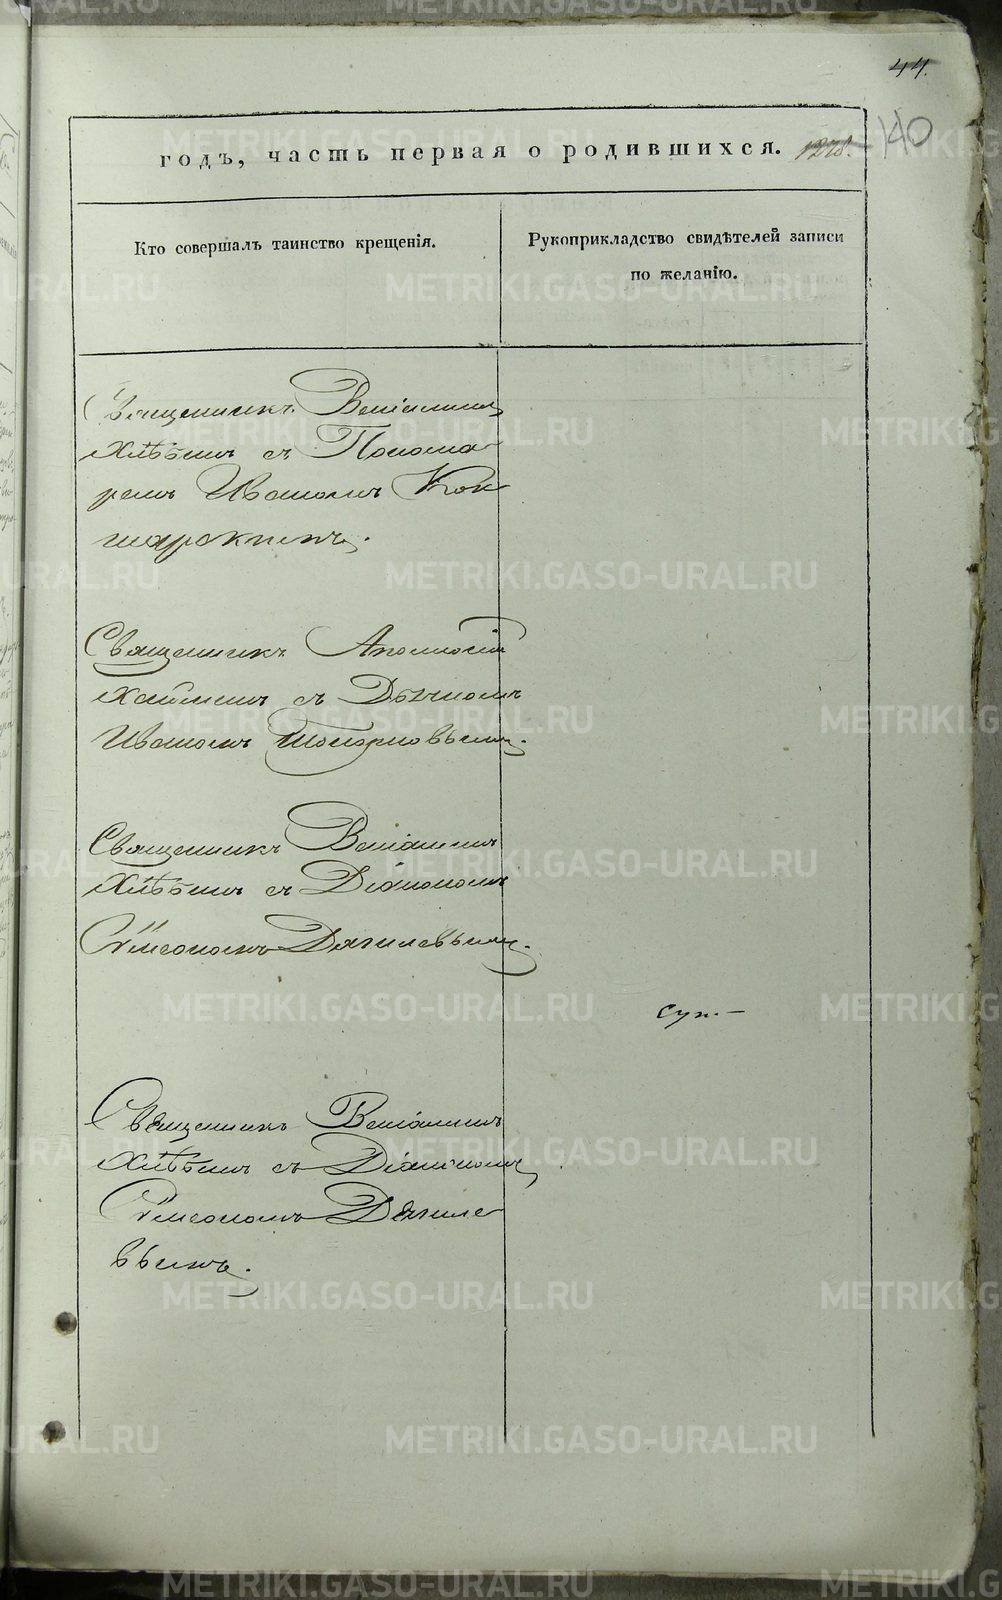 44.
140
годъ, часть первая о родившихся. 1278.
Кто совершалъ таинство крещенія.
Рукоприкладство свидѣтелей записи
по желанію.
Священникъ Веніаминъ
Хлѣбинъ съ Понома
ремъ Иваномъ Кок
шарскимъ.
Священникъ
съ Дьячкомъ
Иваномъ Топорковымъ.
Священникъ Веніаминъ
Хлѣбинъ съ Діакономъ
Симеономъ Дягилевымъ.
Священникъ Веніаминъ
Хлѣбинъ съ Діакономъ
Симеономъ Дягиле
вымъ.
METRIKI.GASO-URAL.RU